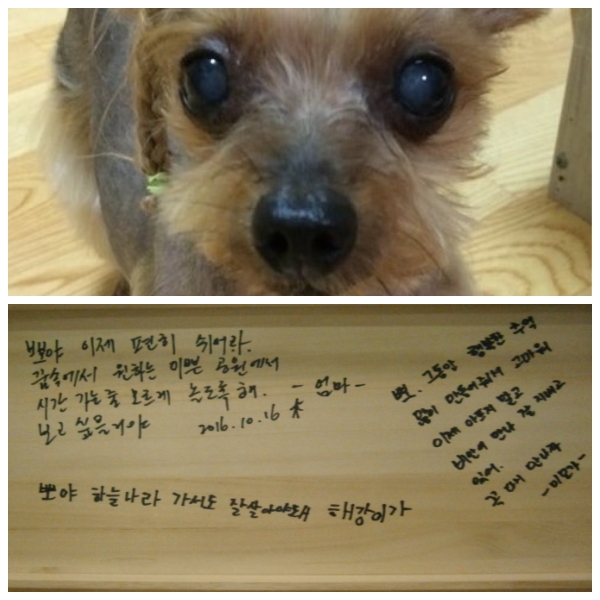 뽀야 이제 편히 쉬어라.
꿈속에서 원하는 이쁜 공원에서
시간 가는줄 모르게 놀도록 해. - 엄마 -
보고 싶을거야 2016.10.16
뽀야 하늘나라 가서도 잘살아야돼 해강이가
뽀. 그동안 행복한 추억
많이 만들어줘서 고마워
이제 아프지 말고
만나 잘 지내고
있어.
꼭 다시 만나자
- 이모가 -